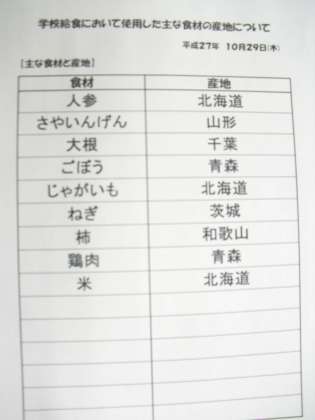 学校給食において使用した主な食材の産地について
平成27年 10月29日(木)
[主な食材と産地]
食材 産地
人参 北海道
さやいんげん 山形
大根 千葉
ごぼう 青森
じゃがいも 北海道
ねぎ 茨城
柿 和歌山
鶏肉 青森
米 北海道